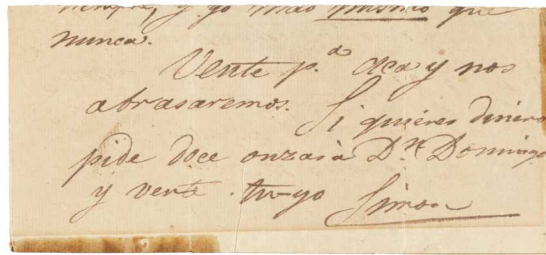 siempre, y yo mas mismo que
nunca.
Vente p.ª aca y nos
abrasaremos. Si quieres dinero
pide doce onzas à D.n Domingo
y vente. tuyo Simon